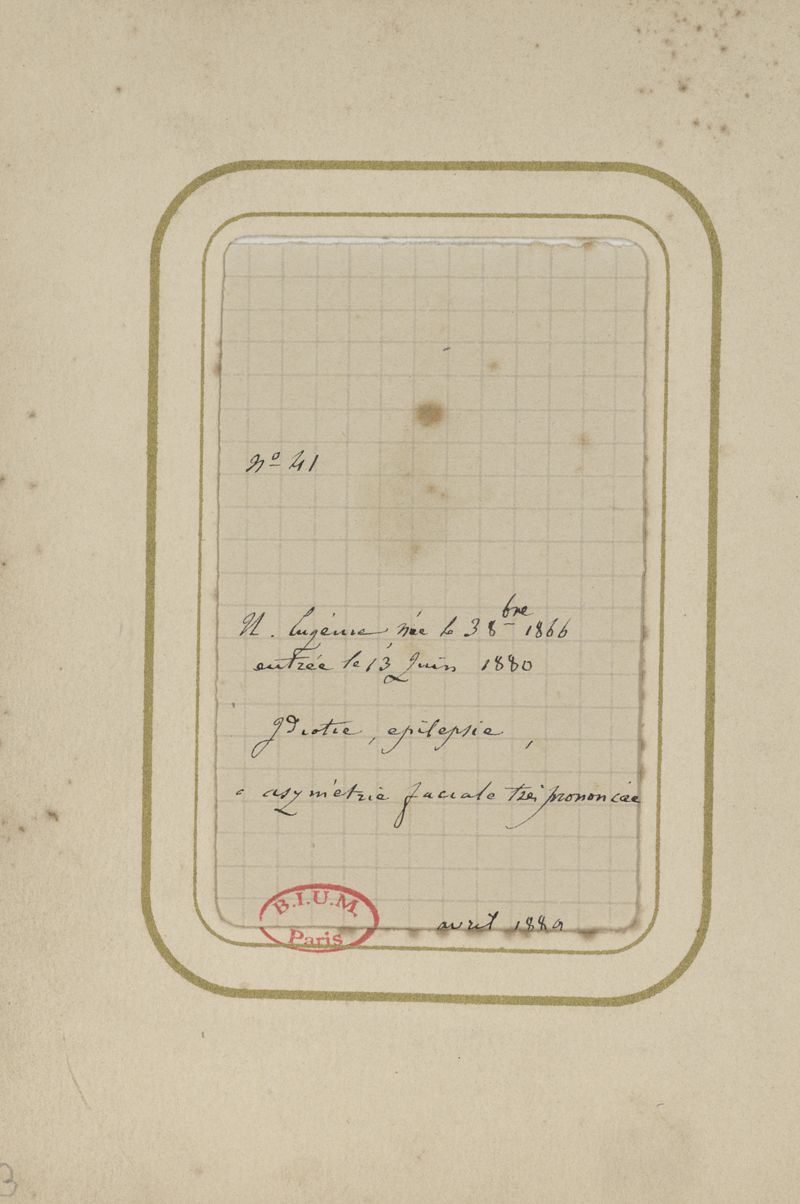 No 41
N. Eugénie née le 3 8bre 1866
entrée le 13 Juin 1880
Idiotie, epilepsie,
asymétrie faciale très prononcée
B.I.U.M.
Paris
avril 1889
3